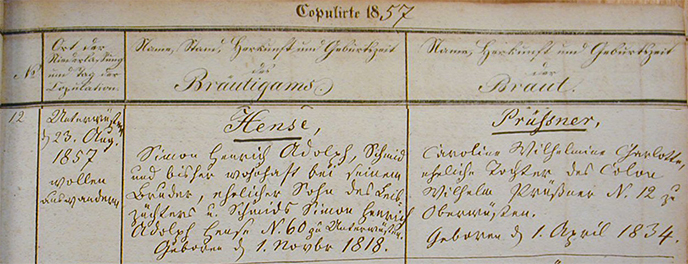 Copulirte 1857
No
Ort der
Niederlassung
und Tag der
Copulation.
Name, Stand, Herkunft und Geburtszeit
des
Bräutigams.
Name, Herkunft und Geburtszeit
der
Braut.
12
Unterwüsten
d 23. Aug.
1857
wollen
auswandern
Hense,
Simon Henrich Adolph, Schmid
und bisher wohnhaft bei seinem
Bruder, ehelicher Sohn des Leib-
züchters u. Schmids Simon Henrich
Adolph Hense N. 60 zu Unterwüsten.
Geboren d 1. Novbr 1818.
Prüssner,
Caroline Wilhelmine Charlotte,
eheliche Tochter des Colon
Wilhelm Prüßner N. 12 zu
Oberwüsten.
Geboren d 1. April 1834.